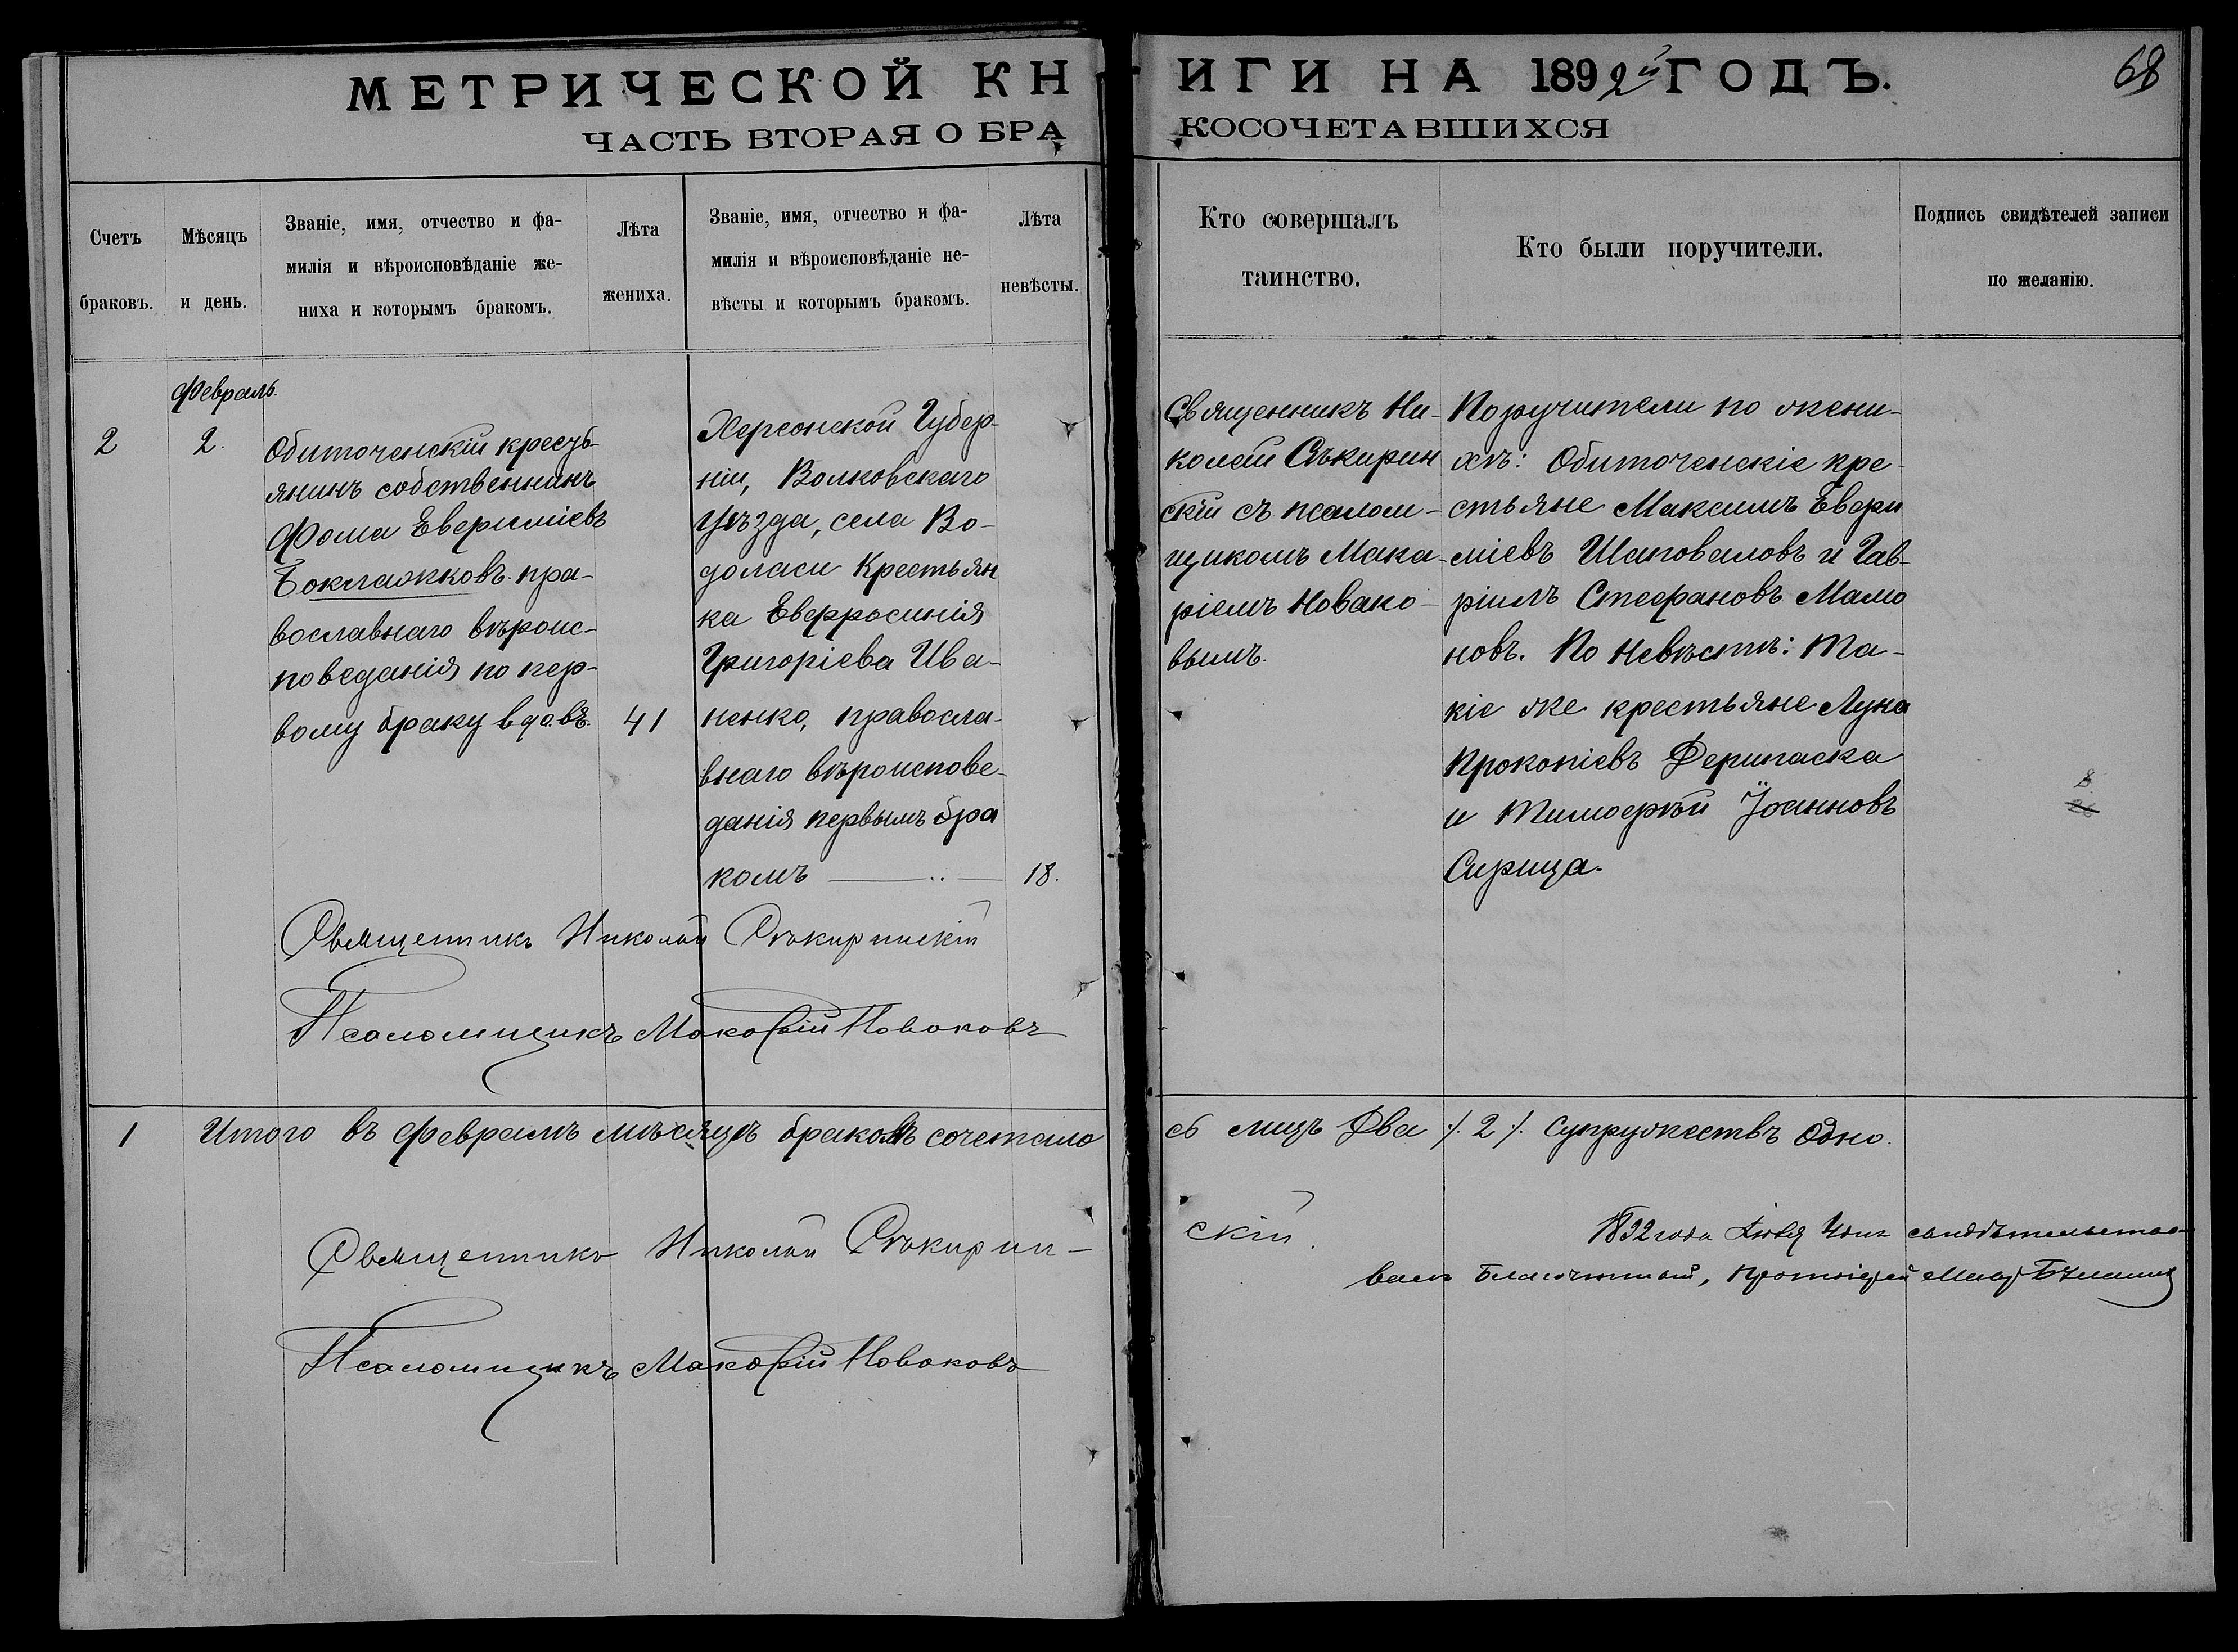 МЕТРИЧЕСКОЙ КНИГИ НА 1892й ГОДЪ.
68
ЧАСТЬ ВТОРАЯ О БРАКОСОЧЕТАВШИХСЯ
Счетъ
браковъ.
Мѣсяцъ
и день.
Званіе, имя, отчество и фа-
милія и вѣроисповѣданіе же-
ниха и которымъ бракомъ.
Лѣта
жениха.
Званіе, имя, отчество и фа-
милія и вѣроисповѣданіе не-
вѣсты и которымъ бракомъ.
Лѣта
невѣсты.
Кто совершалъ
таинство.
Кто были поручители.
Подпись свидѣтелей записи
по желанію.
2
Февраль.
2.
Обиточенскій кресть-
янинъ собственникъ
Фома Евфиміевъ
Боклажковъ пра-
вославнаго вѣроис-
поведанія по пер-
вому браку вдовъ.
41
Херсонской Губер-
ніи, Волковскаго
Уѣзда, села Во-
доласи Крестьян
ка Евфросинія
Григоріева Ива-
ненко, правосла-
внаго вѣроисповe-
данія первымъ бра
комъ
18.
Священникъ Ни-
колай Сѣкирин
скій съ псалом-
щикомъ Мака-
ріемъ Новако-
вымъ.
Поручители по жени-
хѣ: Обиточенскіе кре-
стьяне Максимъ Евфи
міевъ Шаповаловъ и Гав-
ріилъ Стефановъ Мамо
новъ. По невѣстѣ: Та-
кіе же крестьяне Лука
Прокопіевъ Дерипаска
и Тимофѣй Іоанновъ
Сирица.
Священникъ Николай Сѣкиринскій
Псаломщикъ Макарій Новаковъ
1
Итого въ Февралѣ мѣсяцѣ бракомъ сочеталось лицъ Два /. 2 /. Супружествъ Одно.
Священникъ Николай Сѣкирин-
скій.
Псаломщикъ Макарій Новаковъ
1892 года свидѣтельство-
валъ Благочинный, Протоіерей